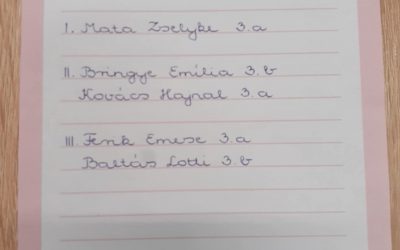 I. Mata Zselyke 3.a
II. Bringye Emília 3.b
Kovács Hajnal 3.a
III. Fenk Emese 3.a
Baltás Lotti 3.b